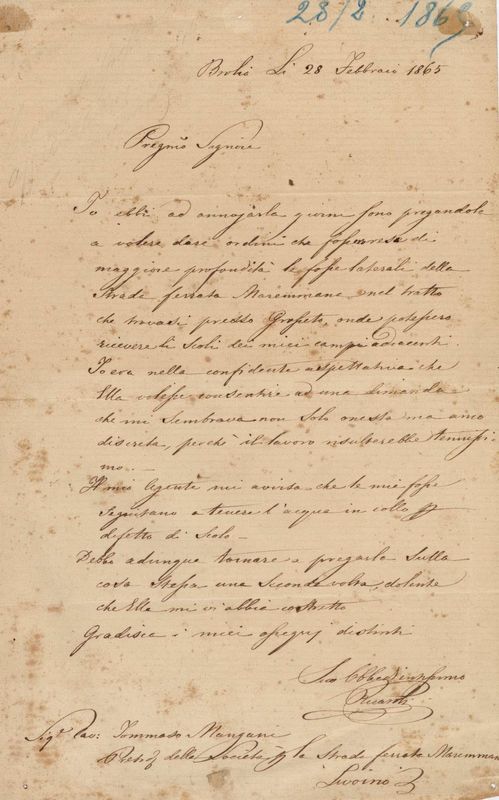 28/2 1865
Brolio Li 28 Febbraio 1865
Pregmo Signore
Io ebbi ad annojarla giorni sono pregandola
a volere dare ordini che fosse resa di
maggiore profondità le fosse laterali della
Strada ferrata Maremmana, nel tratto
che trovasi presso Grosseto, onde potessero
ricevere li Scoli dei miei campi adiacenti.
Io era nella confidente aspettativa che
Ella volesse consentire ad una dimanda
che mi sembrava non solo onesta ma anco
discreta, perchè il lavoro risulterebbe tenuissi
mo. -
Il mio Agente mi avvisa che le mie fosse
Seguitano a tenere l'acqua in collo p
difetto di Scolo -
Debbo adunque tornare a pregarla Sulla
cosa Stessa una Seconda volta, dolente
che Ella mi vi abbia costretto
Gradisca i miei ossequj distinti
Suo Obbedientissimo
Ricasoli
Sigr Cav: Tommaso Mangani
della Società p la Strada ferrata Maremmana
Livorno